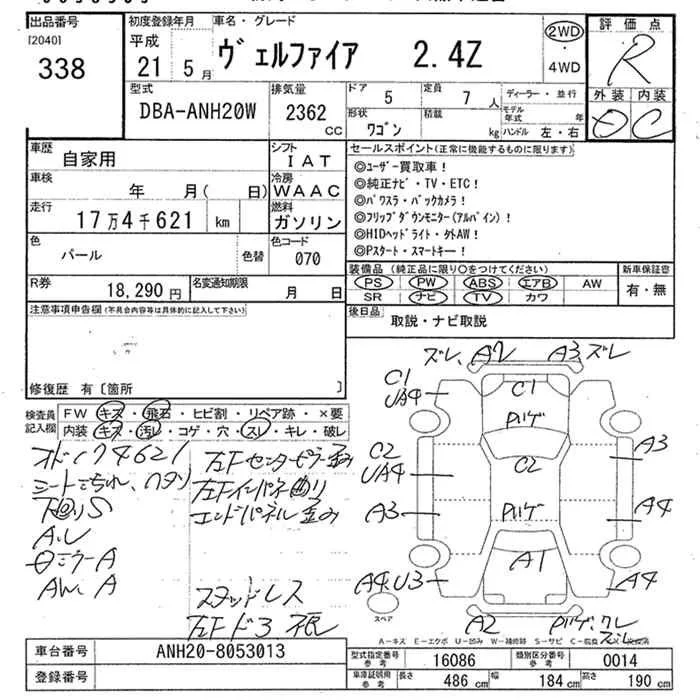 出品番号
[2040]
338
初度登録年月
平成
21年 5月
車名・グレード
ヴェルファイア 2.4Z
2WD
・
4WD
評価点
R
外装 内装
D C
型式
DBA-ANH20W
排気量
2362
CC
ドア
5
定員
7人
ディーラー・並行
形状
ワゴン
積載
kg
モデル年式 年
ハンドル 左・右
車歴
自家用
シフト
IAT
車検
年 月( 日)
冷房
WAAC
走行
17万4千621 km
燃料
ガソリン
色
パール
色替
色コード
070
R券
18,290円
名変通知期限
月 日
セールスポイント(正常に機能するものに限ります)
◎ユーザー買取車!
◎純正ナビ・TV・ETC!
◎パワスラ・バックカメラ!
◎フリップダウンモニター(アルパイン)!
◎HIDヘッドライト・外AW!
◎Pスタート・スマートキー!
装備品 (純正品に限り○をつけてください)
PS PW ABS エアB AW
SR ナビ TV カワ
新車保証書
有・無
後日品
取説・ナビ取説
注意事項申告欄(不具合内容等は具体的に記入して下さい)
修復歴 有[箇所 ]
検査員
記入欄
FW キズ・飛石・ヒビ割・リペア跡・×要
内装 キズ・汚レ・コゲ・穴・スレ・キレ・破レ
オドイ74621
シートこちれ、ヘタリ
下回りS
A.U
ミラーA
AW.A
左Fセンターピラー歪み
左Fインパネ曲り
エンドパネル歪み
スタッドレス
ズレ、A2 A3、ズレ
C1
UA4
C1
ハゲ
C2
UA4
C2
A3
A3
ハゲ
A4
A1
A4、U3
A4
スペア
A2
ハゲ、ワレ
ズレ
A-キズ E-エクボ U-凹み W-補修跡 S-サビ C-腐食
車台番号
ANH20-8053013
登録番号
型式指定番号
参考
16086
類別区分番号
参考
0014
車庫証明用
参考
長さ 486 cm
幅 184 cm
高さ 190 cm